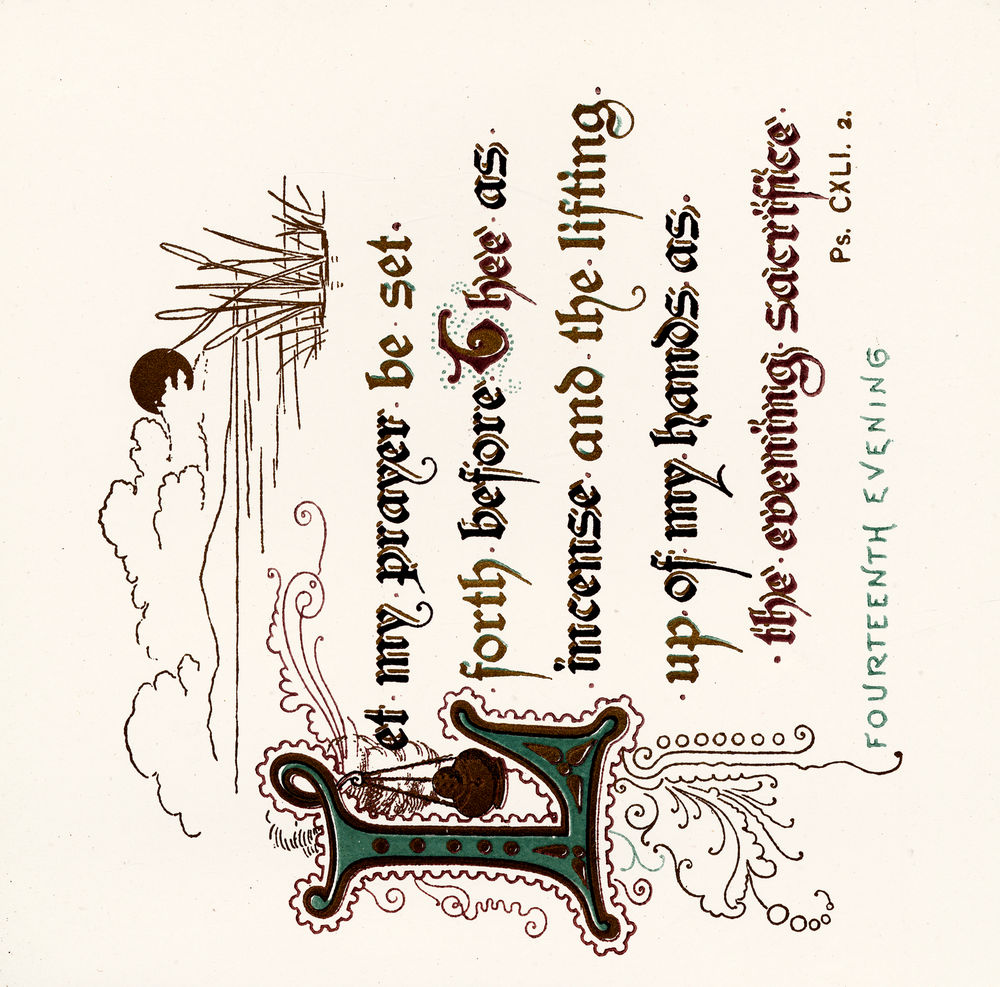 Let my prayer be set
forth before Thee as
incense and the lifting
up of my hands as
the evening sacrifice
Ps. CXLI. 2.
FOURTEENTH EVENING